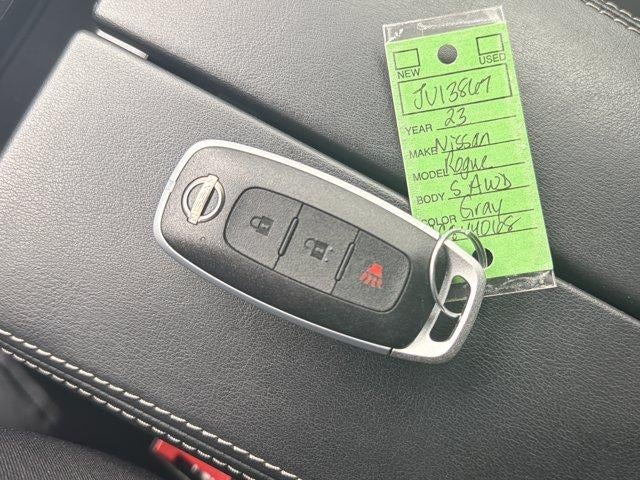 NEW USED
JU13867
YEAR 23
MAKE Nissan
MODEL Rogue
BODY S AWD
COLOR Gray